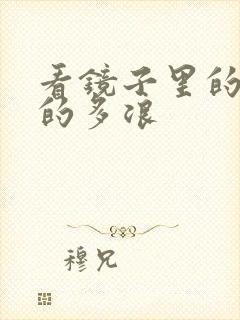 看鏡子里的
的多浪
穆兄